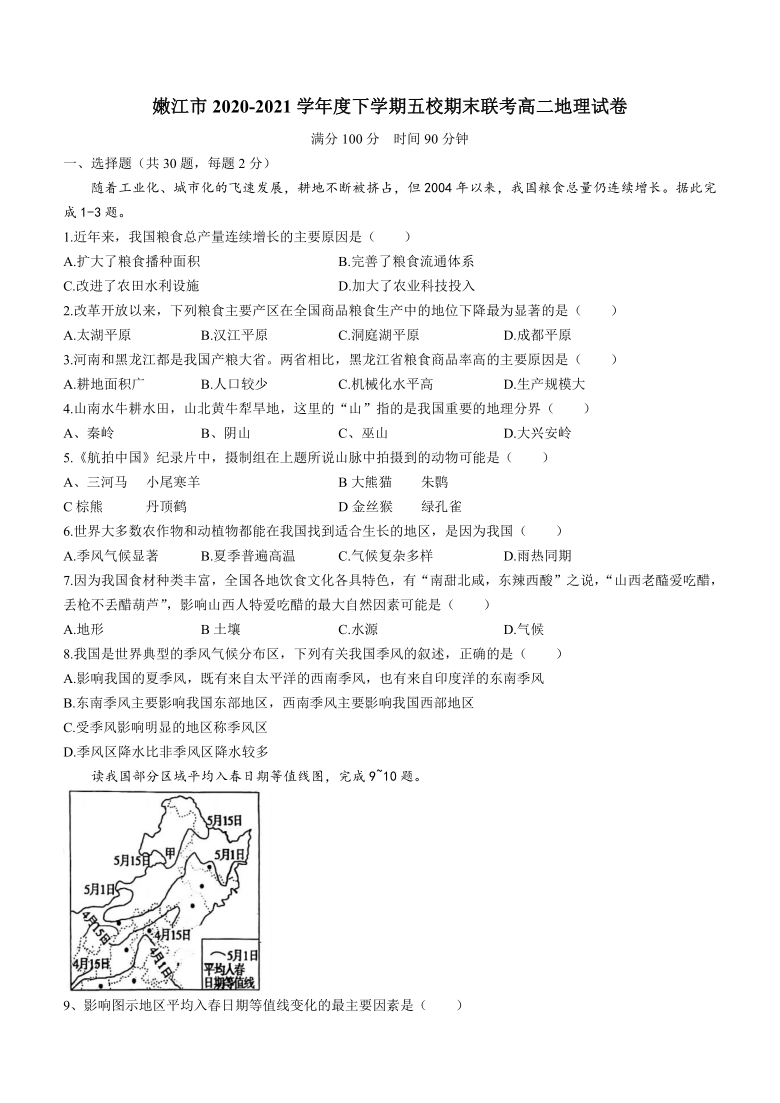 嫩江市 2020-2021 学年度下学期五校期末联考高二地理试卷
满分 100 分　时间 90 分钟
一、选择题（共 30 题，每题 2 分）
随着工业化、城市化的飞速发展，耕地不断被挤占，但 2004 年以来，我国粮食总量仍连续增长。据此完
成 1-3 题。
1.近年来，我国粮食总产量连续增长的主要原因是（　　）
A.扩大了粮食播种面积　　B.完善了粮食流通体系
C.改进了农田水利设施　　D.加大了农业科技投入
2.改革开放以来，下列粮食主要产区在全国商品粮食生产中的地位下降最为显著的是（　　）
A.太湖平原　　B.汉江平原　　C.洞庭湖平原　　D.成都平原
3.河南和黑龙江都是我国产粮大省。两省相比，黑龙江省粮食商品率高的主要原因是（　　）
A.耕地面积广　　B.人口较少　　C.机械化水平高　　D.生产规模大
4.山南水牛耕水田，山北黄牛犁旱地，这里的“山”指的是我国重要的地理分界（　　）
A、秦岭　　B、阴山　　C、巫山　　D.大兴安岭
5.《航拍中国》纪录片中，摄制组在上题所说山脉中拍摄到的动物可能是（　　）
A、三河马　小尾寒羊　　B 大熊猫　朱鹮
C 棕熊　丹顶鹤　　D 金丝猴　绿孔雀
6.世界大多数农作物和动植物都能在我国找到适合生长的地区，是因为我国（　　）
A.季风气候显著　　B.夏季普遍高温　　C.气候复杂多样　　D.雨热同期
7.因为我国食材种类丰富，全国各地饮食文化各具特色，有“南甜北咸，东辣西酸”之说，“山西老醯爱吃醋，
丢枪不丢醋葫芦”，影响山西人特爱吃醋的最大自然因素可能是（　　）
A.地形　　B 土壤　　C.水源　　D.气候
8.我国是世界典型的季风气候分布区，下列有关我国季风的叙述，正确的是（　　）
A.影响我国的夏季风，既有来自太平洋的西南季风，也有来自印度洋的东南季风
B.东南季风主要影响我国东部地区，西南季风主要影响我国西部地区
C.受季风影响明显的地区称季风区
D.季风区降水比非季风区降水较多
读我国部分区域平均入春日期等值线图，完成 9~10 题。
5月15日
5月15日
甲
5月1日
5月1日
4月15日
4月15日
4月15日
4月1日
5月1日
平均入春
日期等值线
9、影响图示地区平均入春日期等值线变化的最主要因素是（　　）